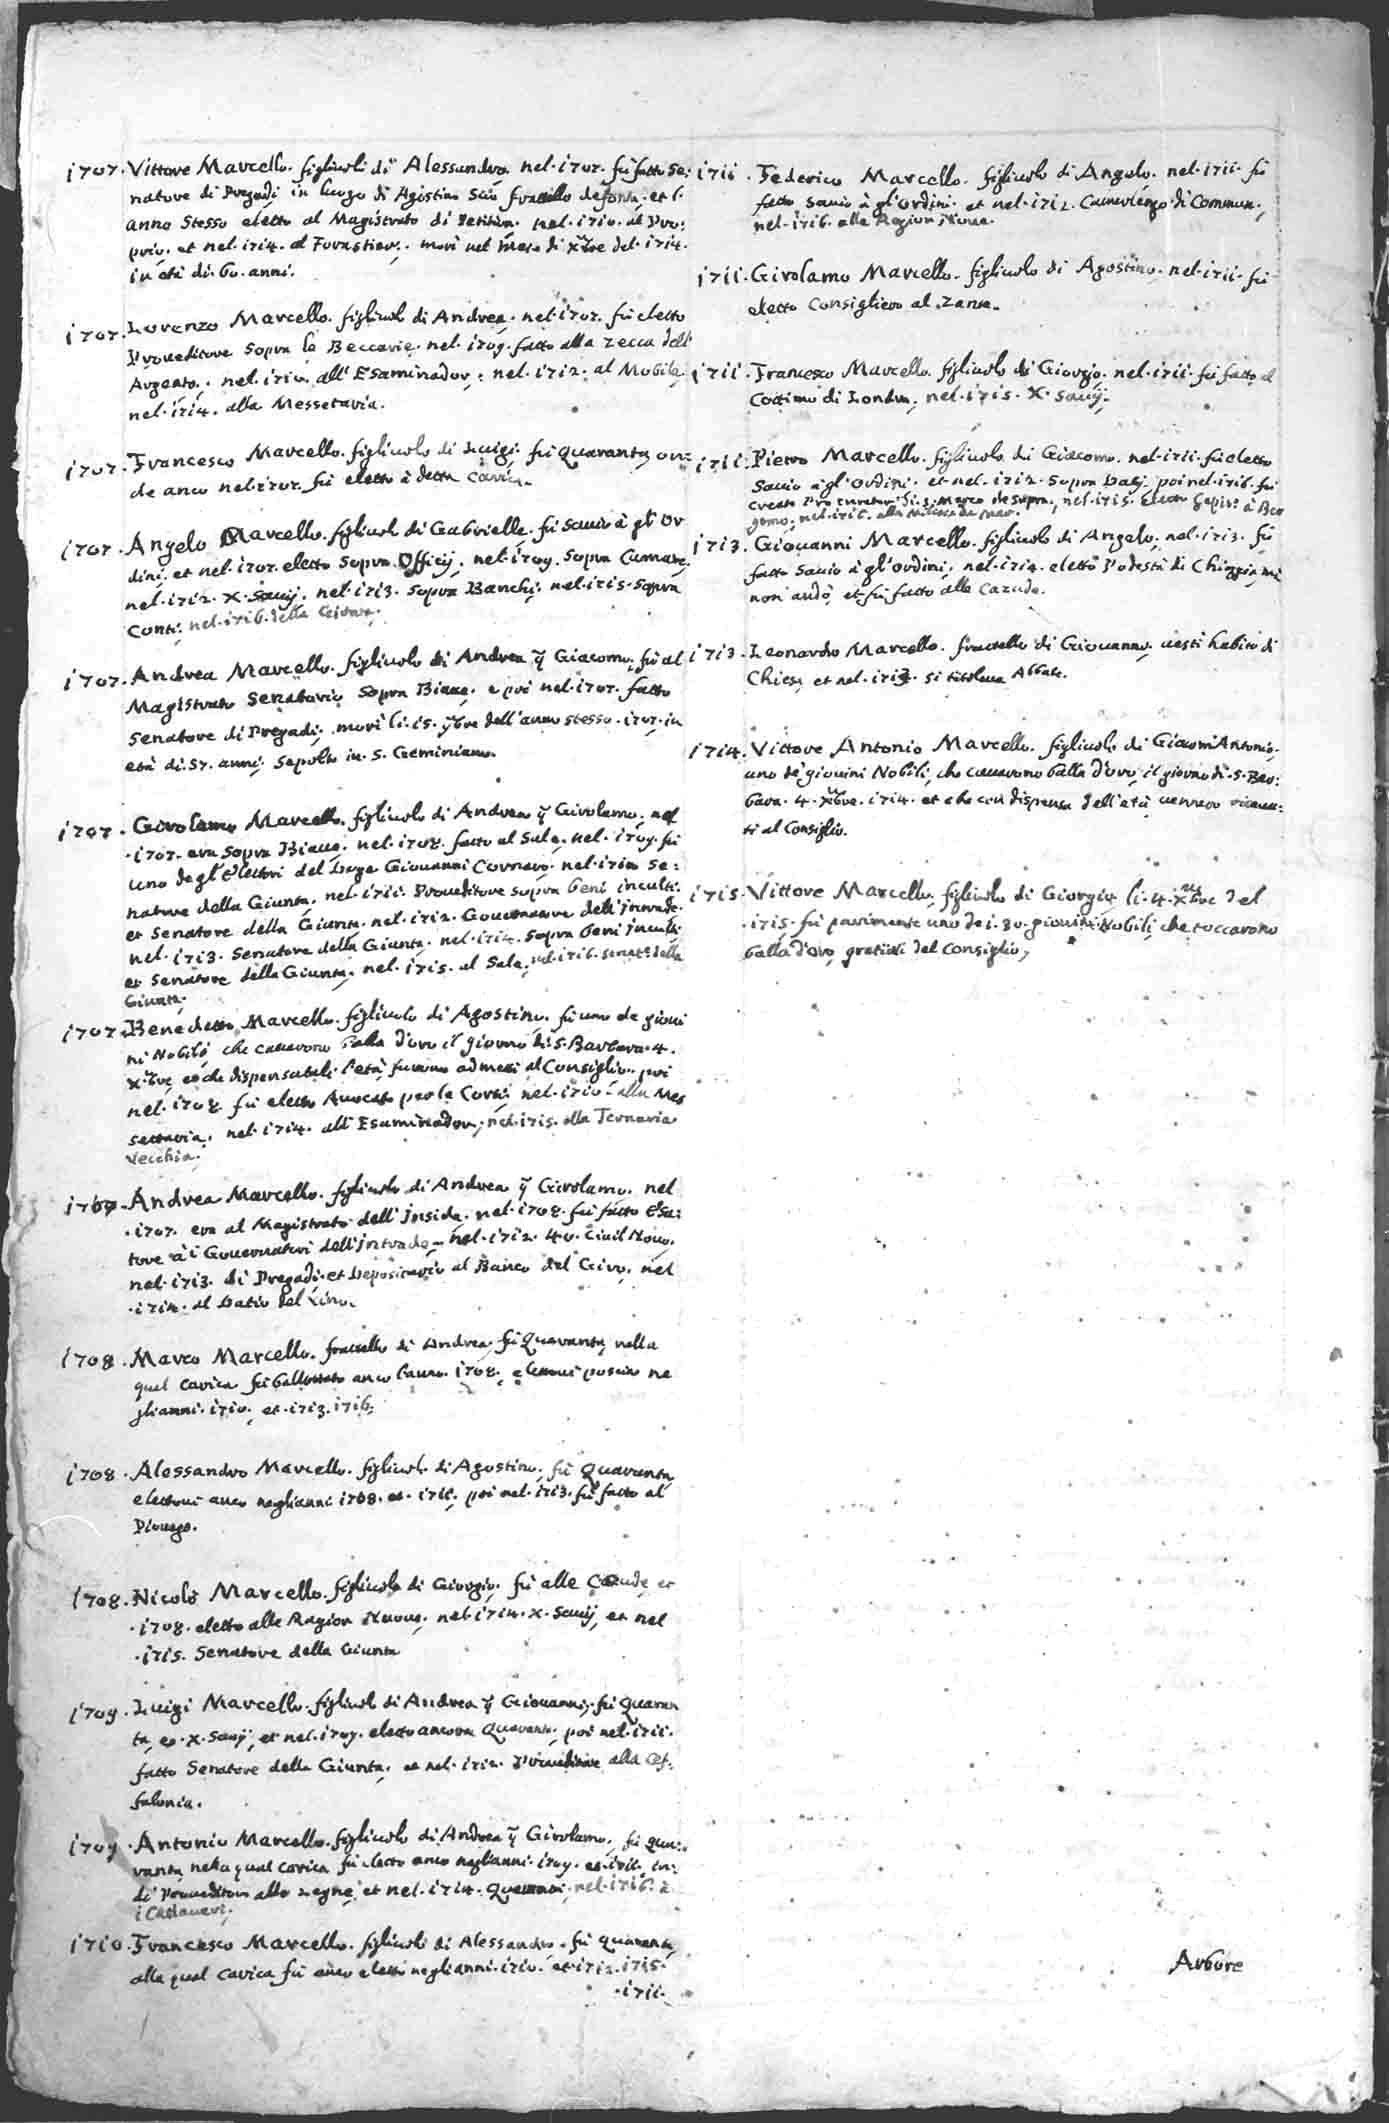 1707. Vittore Marcello. figliuolo di Alessandro. nel. 1707. fù fatto Se:
natore di Pregadi in luogo di Agostino Suo fratello defonto. et l'
anno Stesso eletto al Magistrato di Petition. nel. 1710. al Pro:
prio. et nel. 1714. al Forastier. morì nel mese di Xbre del. 1714.
in età di. 60. anni.
1707. Lorenzo Marcello. figliuolo di Andrea. nel. 1707. fù eletto
Proueditore Sopra le Beccarie. nel. 1709. fatto alla Zecca dell'
Argento. nel. 1710. all' Esaminador. nel. 1712. al Mobile.
nel. 1714. alla Messetaria.
1707. Francesco Marcello. figliuolo di Luigi. fù Quaranta, on:
de anco nel. 1707. fù eletto à detta Carica.
1707. Angelo Marcello. figliuolo di Gabrielle. fù Sauio à gl'Or
dini. et nel. 1707. eletto Sopra Officij. nel. 1709. Sopra Camere.
nel. 1712. X. Sauij. nel. 1713. Sopra Banchi. nel. 1715. Sopra
Conti. nel. 1716. della
1707. Andrea Marcello. figliuolo di Andrea q Giacomo. fù al
Magistrato Senatorio Sopra Biaue. e poi nel. 1707. fatto
Senatore di Pregadi. morì li. 15. 9bre dell'anno stesso. 1707. in
età di. 57. anni. Sepolto in S. Geminiano.
1707. Girolamo Marcello. figliuolo di Andrea q Girolamo. nel
.1707. era Sopra Biaue. nel. 1708. fatto al Sale. nel. 1709. fù
uno degl'Elettori del Doge Giouanni Cornaro. nel. 1710. Se:
natore della Giunta. nel. 1711. Proueditore Sopra beni inculti.
et Senatore della Giunta. nel. 1712. Gouernatore dell'Intrade.
nel. 1713. Senatore della Giunta. nel. 1714. Sopra beni inculti
et Senatore della Giunta. nel. 1715. al Sale. nel. 1716. Senat.e della
Giunta.
1707. Benedetto Marcello. figliuolo di Agostino. fù uno de gioui
ni Nobili, che cauarono balla d'oro il giorno di S. Barbara. 4.
Xbre, et che dispensatali l'età furono admessi al Consiglio. poi
nel. 1708. fù eletto Auocato per le Corti. nel. 1710. alla Mes
settaria. nel. 1714. all' Esaminador. nel. 1715. alla Ternaria
Vecchia.
1707. Andrea Marcello. figliuolo di Andrea q Girolamo. nel
.1707. era al Magistrato dell'Insida. nel. 1708. fù fatto Esa:
tore à i Gouernatori dell'Intrade. nel. 1712. 40. Ciuil Nouo.
nel. 1713. di Pregadi. et Depositario al Banco del Giro. nel
.1714. al Datio del Vino.
1708. Marco Marcello. fratello di Andrea fù Quaranta, nella
qual carica fù ballottato anco l'anno. 1708. e poscia ne
gli anni. 1710. et. 1713. 1716.
1708. Alessandro Marcello. figliuolo di Agostino. fù Quaranta
elettoui anco negl'anni 1708. et. 1711. poi nel. 1713. fù fatto al
Piouego.
1708. Nicolò Marcello. figliuolo di Giorgio. fù alle Cazude, et
.1708. eletto alle Ragion Nuoue. nel. 1714. X. Sauij, et nel
.1715. Senatore della Giunta
1709. Luigi Marcello. figliuolo di Andrea q Giouanni, fù Quaran
ta, et. X. Sauij, et nel. 1709. eletto ancora Quaranta. poi nel. 1711.
fatto Senatore della Giunta. et nel. 1712. Proueditore alla Cef:
falonia.
1709. Antonio Marcello. figliuolo di Andrea q Girolamo. fù Qua:
ranta nella qual carica fù eletto anco negl'anni. 1709. et. 1711. in:
di Proueditor alle Legne, et nel. 1714. Quaranta. nel. 1716. à
i Cattaueri.
1710. Francesco Marcello. figliuolo di Alessandro. fù quaranta
alla qual carica fù anco eletto negl'anni. 1710. et. 1712. 1715.
.1711.
1711. Federico Marcello. figliuolo di Angelo. nel. 1711. fù
fatto Sauio à gl'Ordini. et nel. 1712. Camerlengo di Commun.
nel. 1716. alle Ragion Nuoue.
1711. Girolamo Marcello. figliuolo di Agostino. nel. 1711. fù
eletto Consigliero al Zante.
1711. Francesco Marcello. figliuolo di Giorgio. nel. 1711. fù fatto al
Cottimo di Londra. nel. 1715. X. Sauij.
1711. Pietro Marcello. figliuolo di Giacomo. nel. 1711. fù eletto
Sauio à gl'Ordini. et nel. 1712. Sopra Datij. poi nel. 1716. fù
creato Procurator di S. Marco de Supra. nel. 1715. à Ber
gamo. nel. 1716. alla Militia da Mar.
1713. Giouanni Marcello. figliuolo di Angelo. nel. 1713. fù
fatto Sauio à gl'Ordini. nel. 1714. eletto Podestà di Chioggia, mà
non andò, et fù fatto alle Cazude.
1713. Leonardo Marcello. fratello di Giouanni. uestì habito di
Chiesa, et nel. 1713. si titolaua Abbate.
1714. Vittore Antonio Marcello. figliuolo di Giacom'Antonio.
uno de giouini Nobili, che cauarono balla d'oro, il giorno di. S. Bar:
bara. 4. Xbre. 1714. et che con dispensa dell'età uennero riceuu:
ti al Consiglio.
1715. Vittore Marcello. figliuolo di Giorgio li. 4. Xbre del
.1715. fù parimente uno dei. 30. giouini Nobili, che toccarono
balla d'oro, gratiati del Consiglio,
Arbore